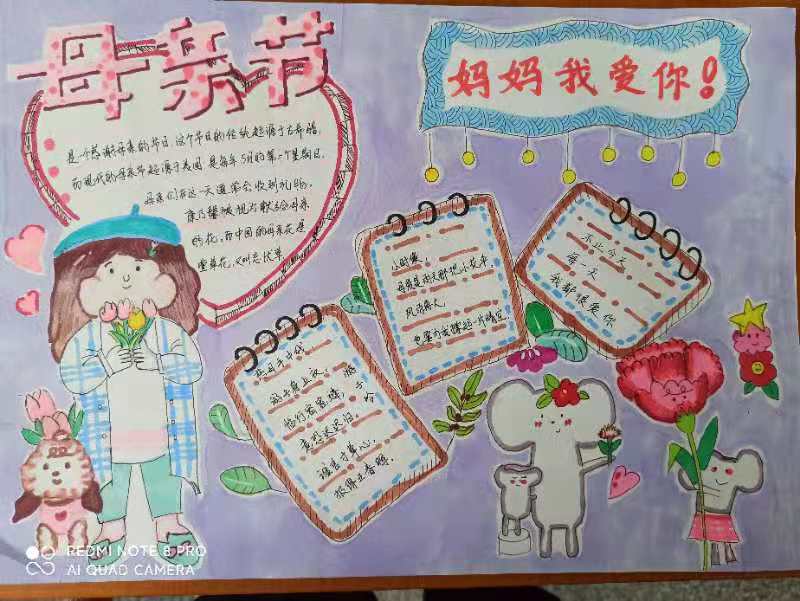 母亲节
是一个感谢母亲的节日,这个节日的传统起源于古希腊,
而现代的母亲节起源于美国,是每年5月的第二个星期日,
母亲们在这一天通常会收到礼物,
康乃馨被视为献给母亲
的花,而中国的母亲花是
萱草花,又叫忘忧草
妈妈我爱你!
小时候,
母亲是雨天那把小花伞
风雨无人,
也要为我撑起一片晴空
不止今天
每一天
我都很爱你
慈母手中线
游子身上衣,
临行密密缝,
意恐迟迟归,
谁言寸草心,
报得三春晖
REDMI NOTE 8 PRO
AI QUAD CAMERA